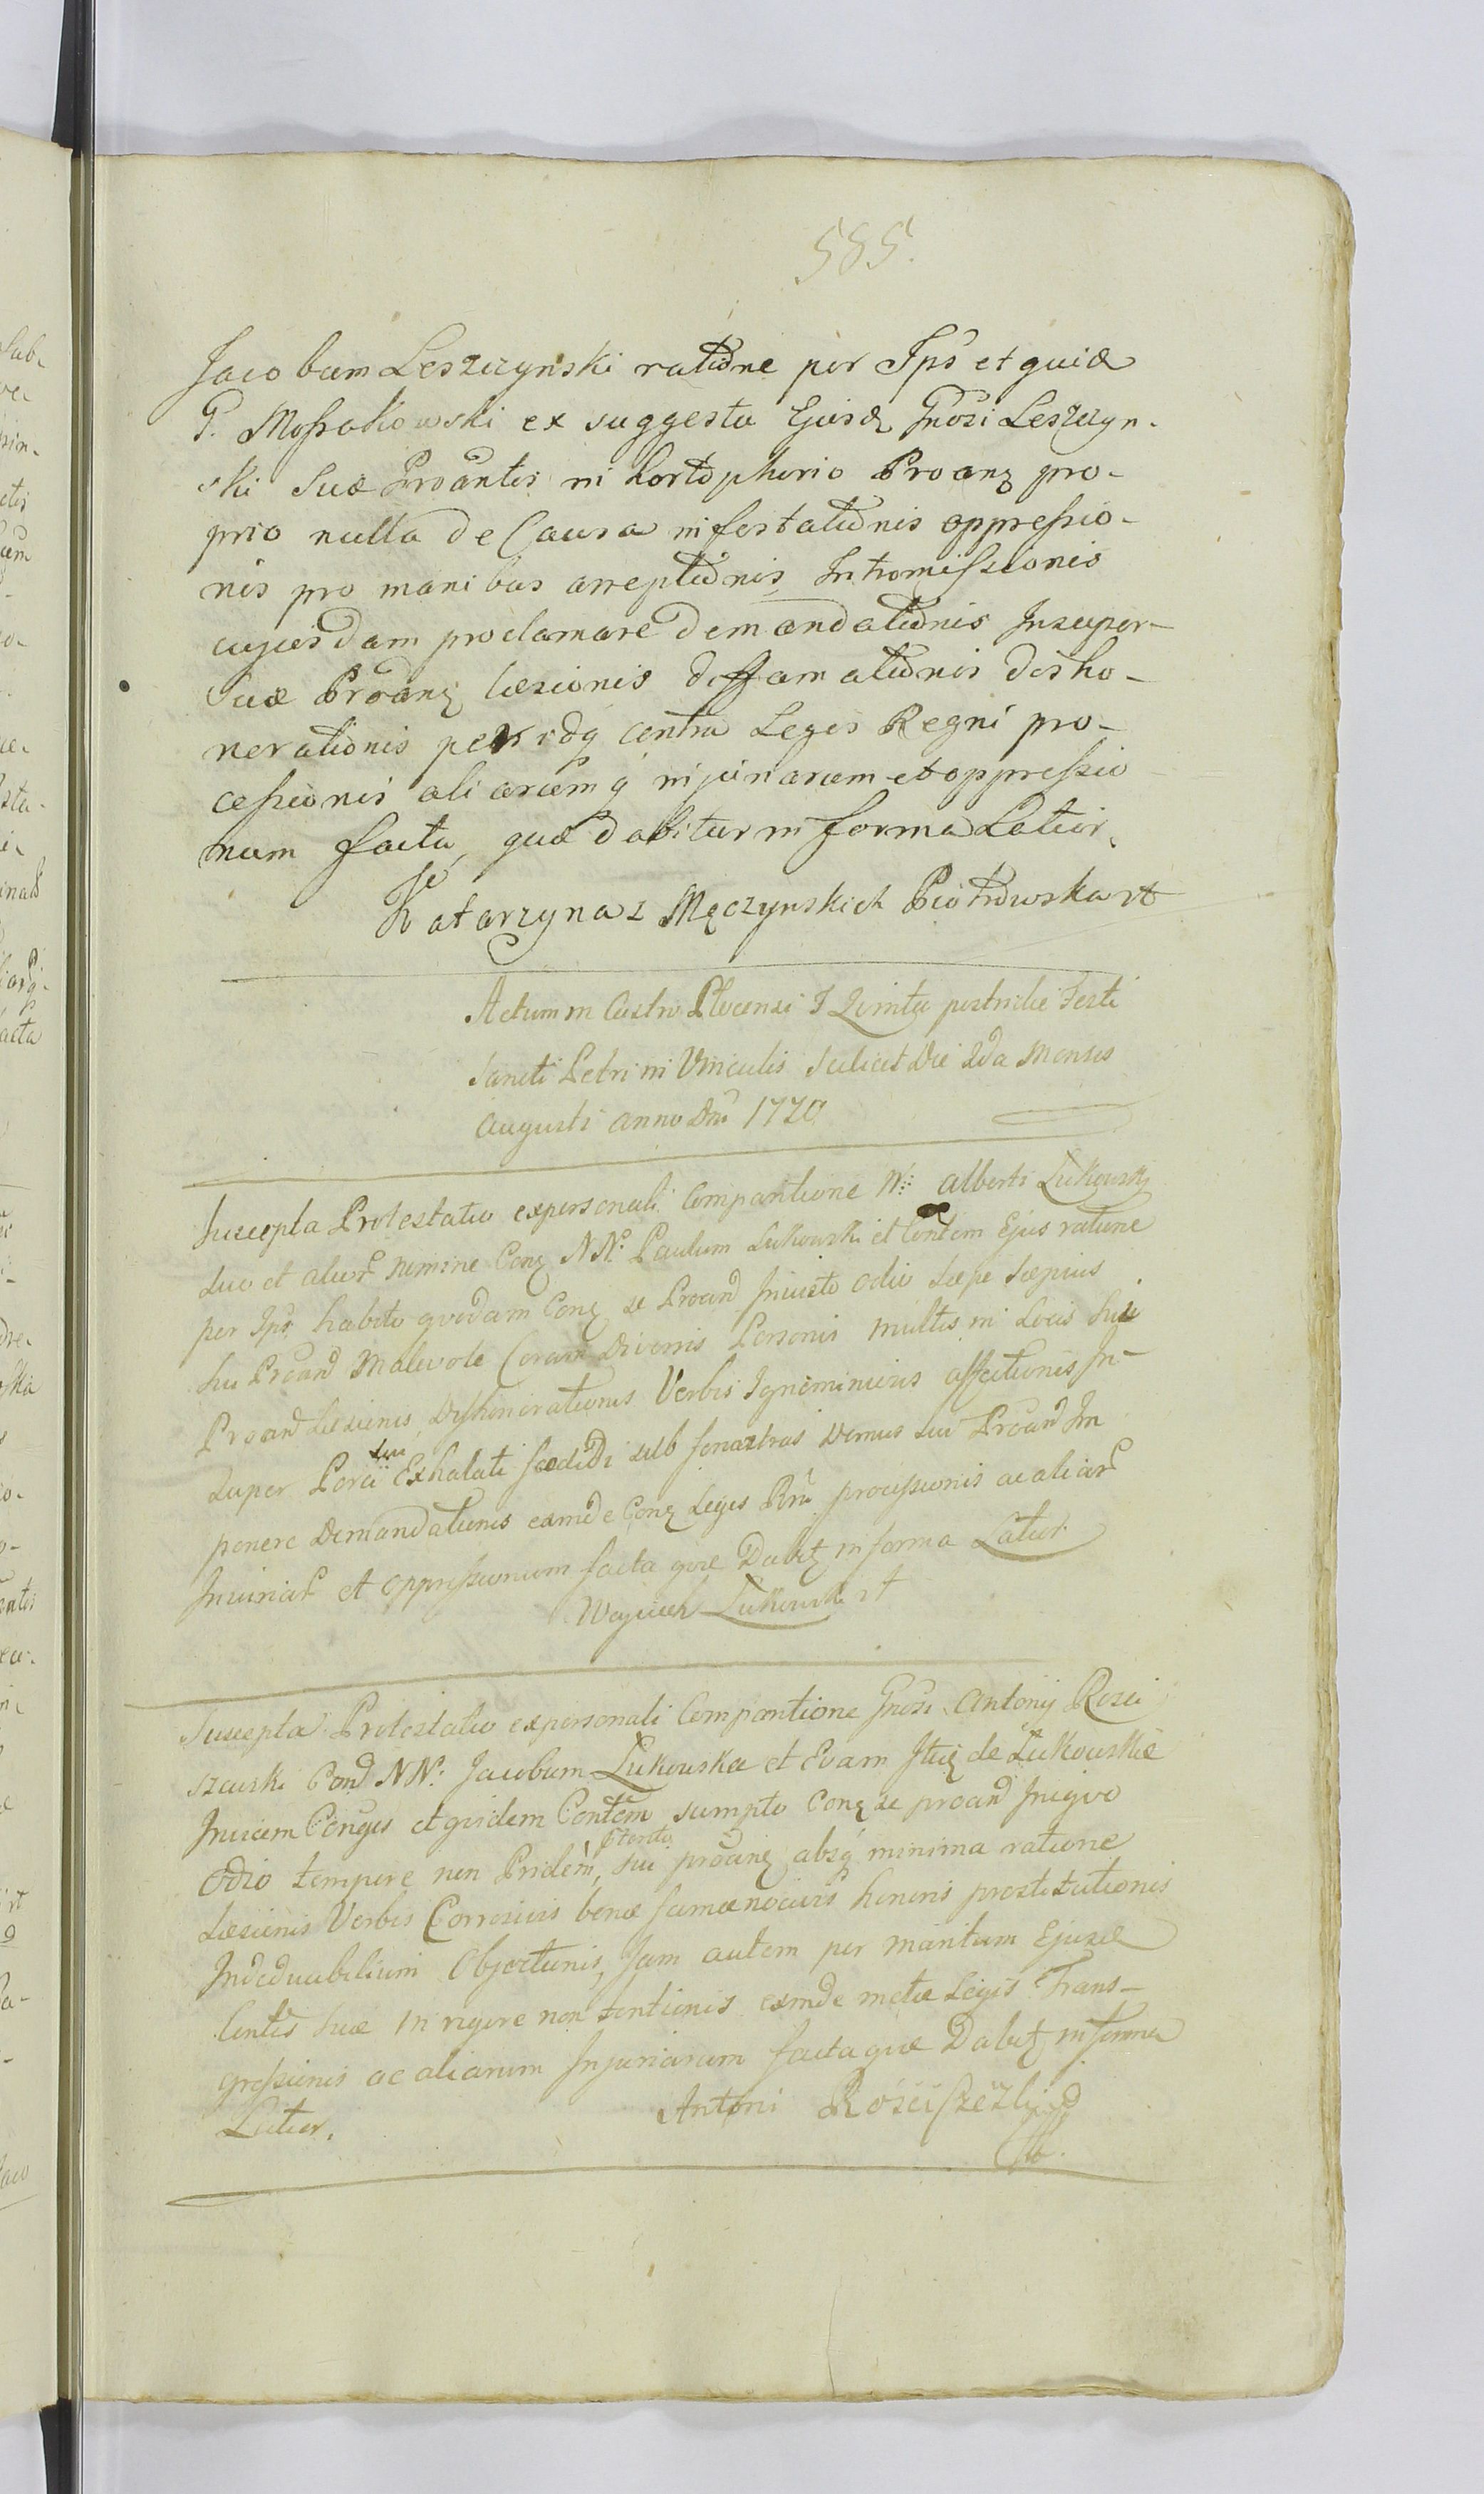 585.
Jacobum Leszczynski ratione per Ips et quia
G. Mossakowski ex suggestu Ejusd Gnosi Leszczyn-
ski Suae Proantis in hortophorio Proanz pro-
prio nulla de Causa infestationis oppressio-
nis pro manibus arreptionis, Intromissionis
cujusdam proclamare demandationis Insuper
Suae Proanz laesionis diffamationis disho-
nerationis contra Leges Regni pro-
cessionis aliarumq injuriarum et oppressio
num facta, quae dabitur in forma Latior.
Katarzyna z Męczynskich Piotrowska
Actum in Castro Plocensi F Quinta postridie Festi
Sancti Petri in Vinculis scilicet Die 2da Mensis
Augusti Anno Dni 1770
Suscepta Protestatio ex personali Comparitione N: Alberti Lukowski
suo et alior nomine Conz NN: Paulum Lukowski et Contem Ejus ratione
per Ips habito quodam Conz se Proand Injusto odio saepe saepius
sui Proand Malevole Coram Diversis Personis multis in Locis Suae
Proand Laesionis, Dishonorationis Verbis Ignominiosis affectionis In-
super Porci sui Exhalati foetidi sub fenestras Domus sui Proand Im
ponere Demandationis exinde Conz Leges Rni processionis ac aliar
Injuriar et oppressionum facta quae Dabitz in forma Latior.
Woyciech Lukowski
Suscepta Protestatio ex personali Comparitione Gnosi Antonij Rosci
szewski Cond NN: Jacobum Lukowska et Evam de Lukowskie
Invicem Conges et quidem Contem sumpto Conz se proand Iniquo
odio tempore non Pridem, sui proanz absq minima ratione
Laesionis Verbis Corrosivis bonae famae nocivis honoris prostitutionis
Objectionis, Jam autem per maritum Ejusd
Contis suae in rigore non tentionis exinde metae Legis Trans-
gressionis ac aliarum Injuriarum facta quae Dabitz in forma
Latior.
Antoni Rosciszewski